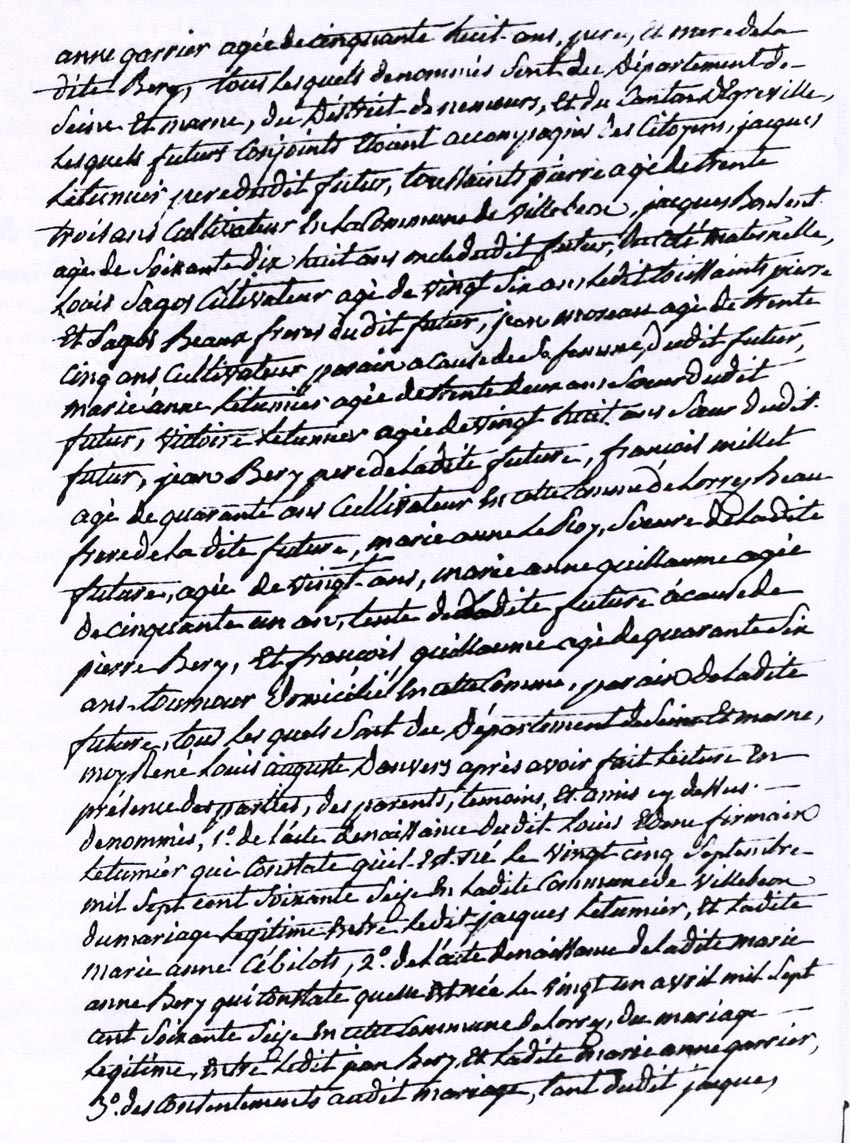 anne garrier agée de cinquante huit ans, pere, et mere de la
dite Bery, tous lesquels denommés sont du Département de
Seine et marne, du District de nemours, et du Canton D'Egreville,
Lesquels futurs Conjoints étoient accompagnés des Citoyens, jacques
Letumier pere dudit futur, toussaints pierre agé de trente
trois ans Cultivateur en la Commune de Villebeon, jacques
agé de Soixante dix huit ans oncle dudit futur, du Côté maternelle,
Louis Sagos Cultivateur agé de vingt Six ans, Ledit toussaints pierre
Et Sagos Beaux freres dudit futur, jean moreau agé de trente
cinq ans Cultivateur, parain a cause de Sa femme, dudit futur,
marie anne Letumier agée de trente deux ans Sœur dudit
futur, Victoire Letumier agée de vingt huit ans Sœur dudit
futur, jean Bery pere de la dite future, françois millet
agé de quarante ans Cultivateur en cette Commune de Lorrey beau
frere de la dite future, marie anne Le Roy, Sœure de Ladite
future, agée de vingt ans, marie anne guillaume agée
de cinquante un an, tente de Ladite future à cause de
pierre Bery, Et françois guillaume agé de quarante Six
ans tourneur Domicilié en cette Commune, parain de Ladite
future, tous Lesquels Sont du Département de Seine et marne,
moy René Louis auguste Danvers après avoir fait Lecture en
présence des parties, des parents, temoins, et amis cy dessus
denommés, 1º. de l'acte de naissance dudit Louis Edme firmain
Letumier qui Constate qu'il Est né Le vingt cinq Septembre
mil Sept cent Soixante Seize en Ladite Commune de Villebeon
du mariage Legitime entre Ledit jacques Letumier, et Ladite
marie anne Cébilots, 2º. de l'acte de naissance de Ladite marie
anne Bery qui Constate quelle est née Le vingt un avril mil Sept
cent Soixante Seize en cette Commune de Lorry, du mariage
Legitime, entre Ledit jean Bery, et Ladite marie anne garrier,
3º. des Consentements audit mariage, tant dudit jacques